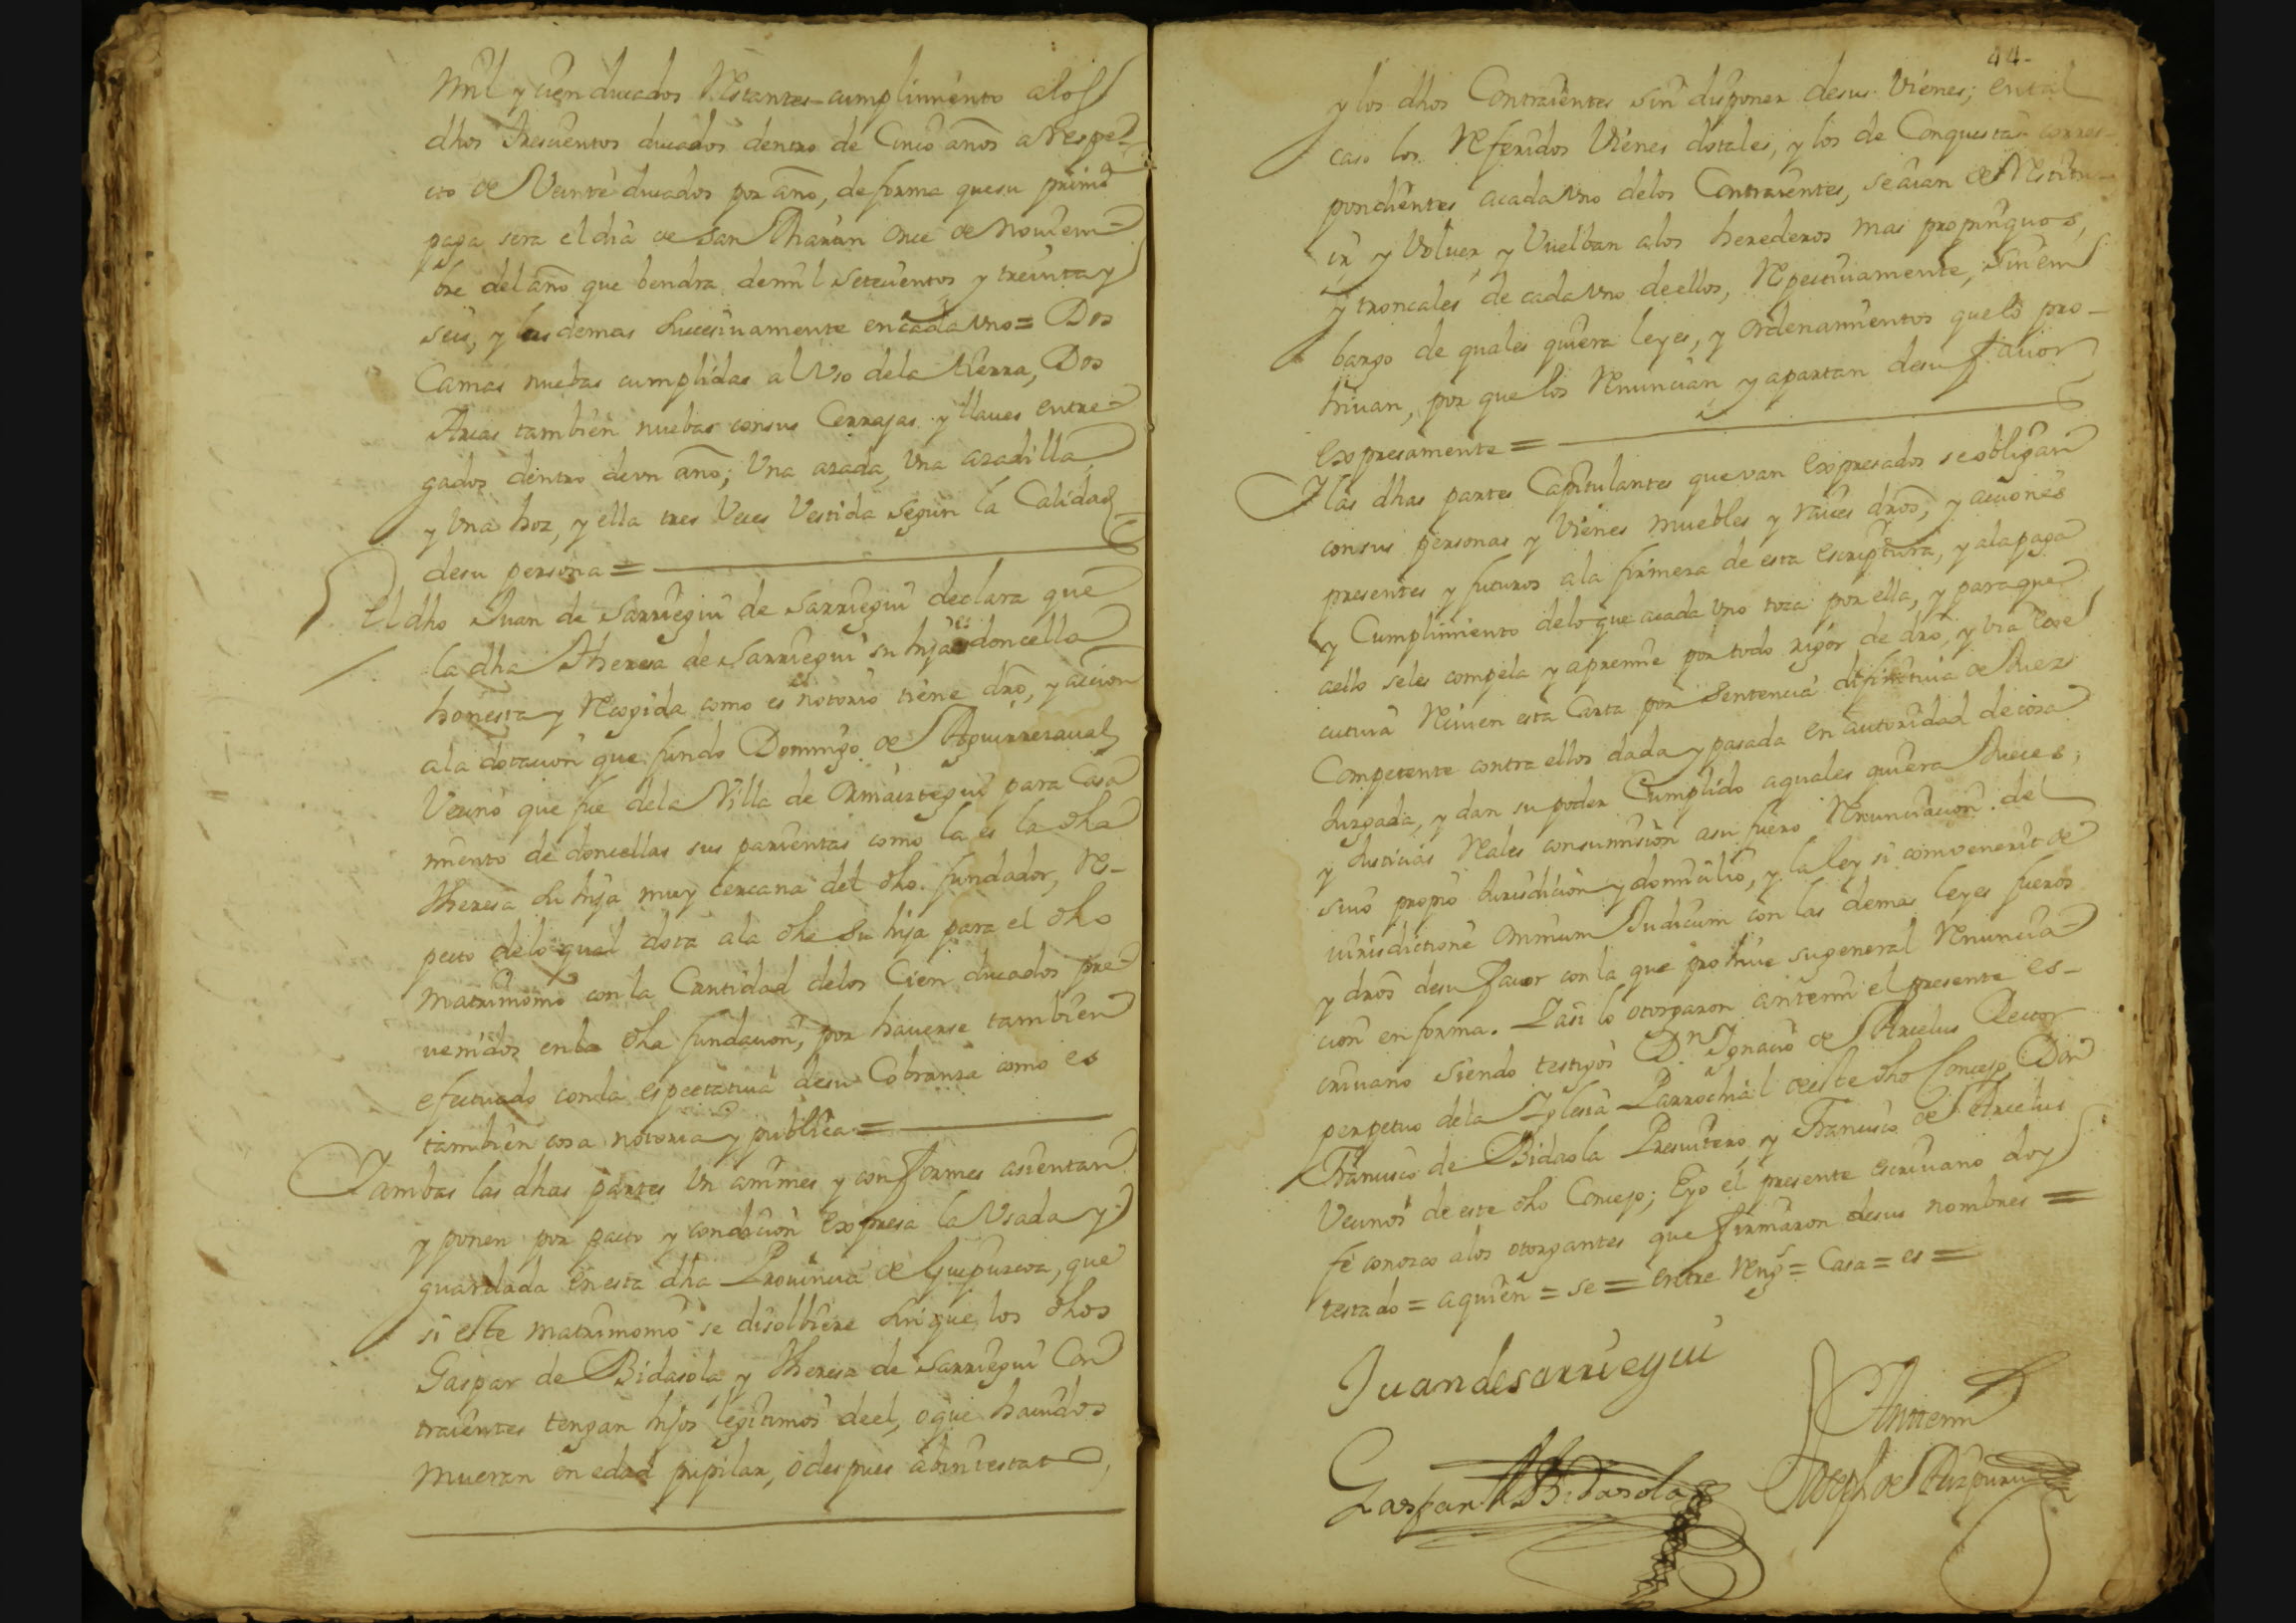 Mil y cien ducados Restantes cumplimento alos
dhos trescientos ducados dentro de Cinco años a respe-
cto de Veinte ducados por año, de forma quesu prim.ª
paga sera el dia de San Martin once de Noviem=
bre del año que bendra demil setecientos y treinta y
seis, y las demas sucesivamente encada vno= Dos
Camas nuebas cumplidas al Vso dela tierra, Dos
Arcas tambien nuebas consus Cerrajas y llaues entre=
gados dentro devn año; Vna azada, Vna azadilla
y Vna hoz, y ella tres Veces Vestida segun la Calidad
desu persona=
El dho Juan de Sarriegui de Sarriegui declara que
la dha Theresa de Sarriegui su hija es doncella
honesta y Recogida como es notorio tiene el dro, y accion
ala dotacion que fundo Domingo de Aguirrezaual
Vecino que fue dela Villa de Ormaiztegui para Casa
miento de doncellas sus parientas como la es la dha
Theresa su hija muy cercana del dho fundador, Res-
pecto delo qual dota ala dha su hija para el dho
Matrimonio con la Cantidad delos Cien ducados pre=
uenidos enla dha fundacion, por hauerse tambien
efectuado conla espectatiua desu Cobranza como es
tambien cosa notoria y publica=
Y ambas las dhas partes Vn animes y conformes asientan
y ponen por pacto y condicion expresa la Vsada y
guardada en esta dha Prouincia de Guipuzcoa, que
si este matrimonio se disolbiere sin que los dhos
Gaspar de Bidasola y Theresa de Sarriegui Con
traientes tengan hijos legitimos deel, o que hauidos
mueran en edad pupilar, o despues abintestato,
44-
y los dhos Contraientes sin disponer desus Vienes; en tal
caso los Referidos Vienes dotales, y los de Conquesta corres-
pondientes acada Vno delos Contraientes, se aian de Restitu-
ir y Voluer, y Vuelban alos herederos mas propinquos,
y troncales de cada Vno deellos, Respectiuamente, sin em
bargo de quales quiera leyes, y ordenamientos que lo pro-
hiuan, por que los Renuncian y apartan desu fauor
expresamente=
Y las dhas partes Capitulantes que van expresados se obligan
consus personas y Vienes muebles y raices dros, y acciones
presentes y futuros ala firmeza de esta escriptura, y ala paga
y Cumplimiento delo que acada Vno toca por ella, y paraque
aello seles compela y apremie por todo rigor de dro, y Via exe
cutiua Reciuen esta Carta por sentencia difinitiua de Juez
Competente contra ellos dada y pasada en autoridad decosa
Juzgada, y dan su poder Cumplido aquales quiera Jueces,
y Justicias Reales consumision asu fuero Renunciacion del
suio propio Jurisdicion y domicilio, y la ley si combenerit de
iurisdictione omnium Judicum con las demas leyes fueros
y dros desu fauor con la que prohiue su general Renuncia=
cion en forma. Y asi lo otorgaron ante mi el presente es-
criuano siendo testigos Dn Ignacio de Arcelus Rector
perpetuo dela Yglesia Parrochial deeste dho Concejo, Don
Francisco de Bidasola Presuitero, y Francisco de Arcelus
Vecinos de este dho Concejo; E yo el presente escriuano doy
fe conozco alos otorgantes que firmaron desus nombres=
testado= aquien= se= entre Reng.s= Casa= es=
Juan de sarriegui
Ante mi
Gaspar de Bidasola
Joseph de Aizpuru